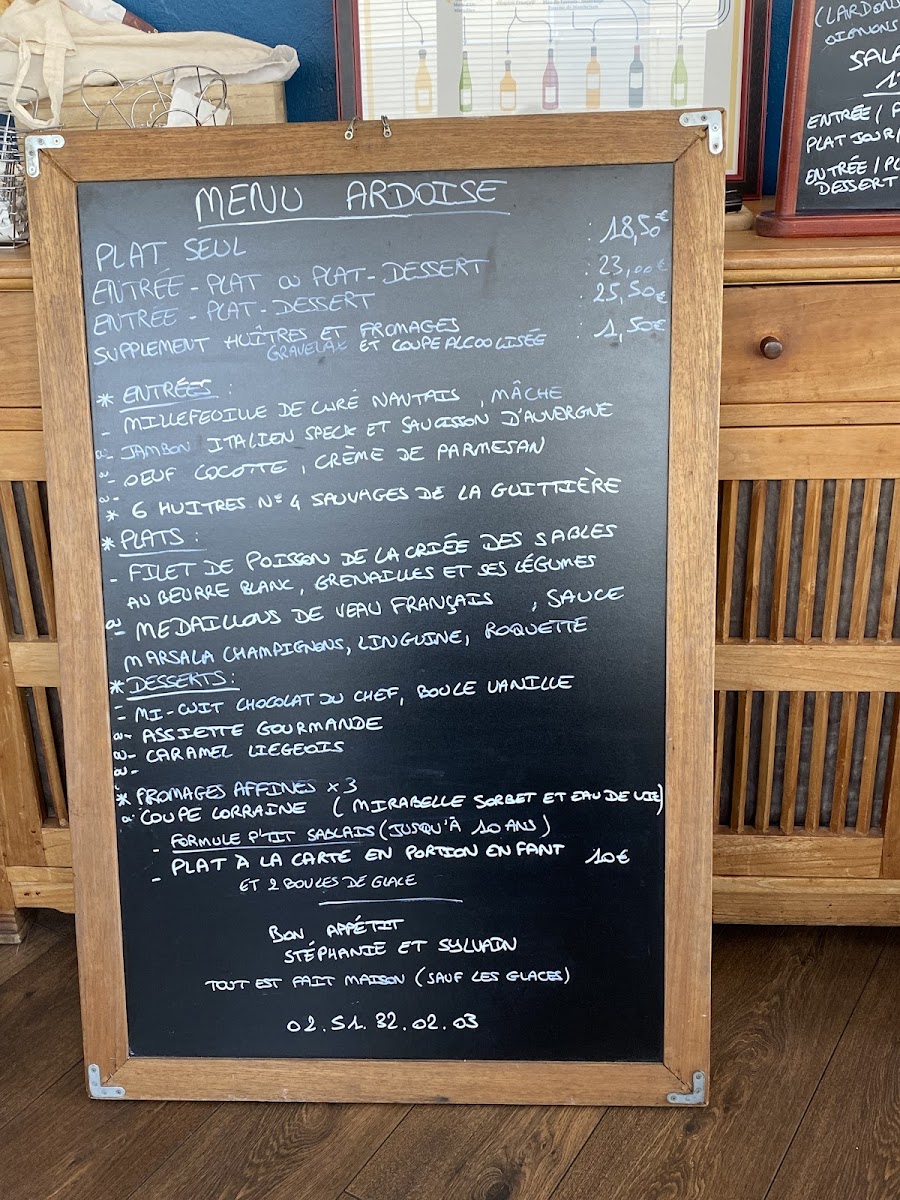 MENU ARDOISE
PLAT SEUL : 18,50€
ENTRÉE - PLAT OU PLAT - DESSERT : 23,00€
ENTREE - PLAT - DESSERT : 25,50€
SUPPLEMENT HUÎTRES ET FROMAGES : 1,50€
GRAVELAX ET COUPE ALCOOLISÉE
* ENTRÉES :
- MILLEFEUILLE DE CURÉ NANTAIS, MÂCHE
- JAMBON ITALIEN SPECK ET SAUCISSON D'AUVERGNE
- OEUF COCOTTE, CRÈME DE PARMESAN
* 6 HUITRES N°4 SAUVAGES DE LA GUITTIÈRE
* PLATS :
- FILET DE POISSON DE LA CRIÉE DES SABLES
AU BEURRE BLANC, GRENAILLES ET SES LÉGUMES
- MEDAILLONS DE VEAU FRANÇAIS, SAUCE
MARSALA CHAMPIGNONS, LINGUINE, ROQUETTE
* DESSERTS :
- MI-CUIT CHOCOLAT DU CHEF, BOULE VANILLE
- ASSIETTE GOURMANDE
- CARAMEL LIEGEOIS
* FROMAGES AFFINES x3
COUPE LORRAINE (MIRABELLE SORBET ET EAU DE VIE)
- FORMULE P'TIT SABLAIS (JUSQU'À 10 ANS)
- PLAT À LA CARTE EN PORTION ENFANT 10€
ET 2 BOULES DE GLACE
BON APPÉTIT
STÉPHANIE ET SYLVAIN
TOUT EST FAIT MAISON (SAUF LES GLACES)
02.51.32.02.03
(LARDONS
OIGNONS
ENTRÉE /
PLAT JOUR /
ENTRÉE /
DESSERT